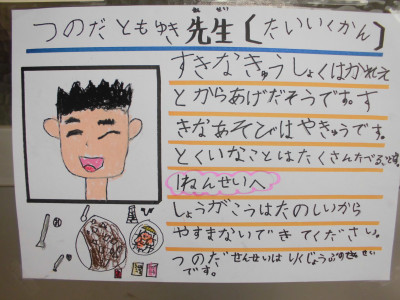 つのだ ともゆき 先生 〔たいいくかん〕
すきなきゅうしょくはかれえ
とからあげだそうです。す
きなあそびはやきゅうです。
とくいなことはたくさんたべることです。
1ねんせいへ
しょうがこうはたのしいから
やすまないできてください。
つのだせんせいはりくじょうぶのせんせい
です。